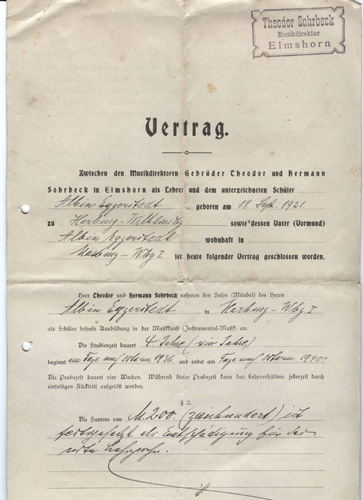 Theodor Sohrbeck
Musikdirektor
Elmshorn
Vertrag.
Zwischen den Musikdirektoren Gebrüder Theodor und Hermann
Sohrbeck in Elmshorn als Lehrer und dem unterzeichneten Schüler
Albin Eggerstedt geboren am 18 Sept. 1921
zu Harburg-Wilhelmsbg sowie dessen Vater (Vormund)
Albin Eggerstedt wohnhaft in
Harburg-Wbg I ist heute folgender Vertrag geschlossen worden.
§ 1
Herr Theodor und Hermann Sohrbeck nehmen den Sohn (Mündel) des Herrn
Albin Eggerstedt in Harburg-Wbg I
als Schüler behufs Ausbildung in der Musikkunst (Instrumental-Musik) an.
Die Studienzeit dauert 4 Jahre (vier Jahre)
beginnt am Tage nach Ostern 1936 und endet am Tage nach Ostern 1940.
Die Probezeit dauert vier Wochen. Während dieser Probezeit kann das Lehrverhältnis jederzeit durch
einseitigen Rücktritt aufgelöst werden.
§ 2
Die Summe von M 200. (zweihundert) ist
festgesetzt als Entschädigung für das
erste Lehrjahr.